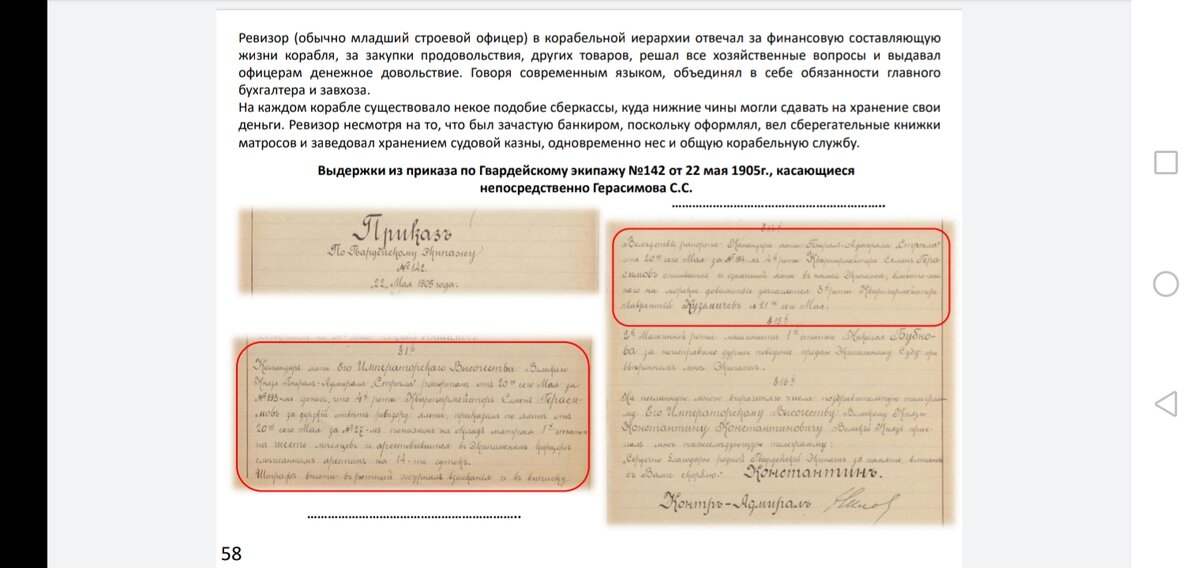 Ревизор (обычно младший строевой офицер) в корабельной иерархии отвечал за финансовую составляющую
жизни корабля, за закупки продовольствия, других товаров, решал все хозяйственные вопросы и выдавал
офицерам денежное довольствие. Говоря современным языком, объединял в себе обязанности главного
бухгалтера и завхоза.
На каждом корабле существовало некое подобие сберкассы, куда нижние чины могли сдавать на хранение свои
деньги. Ревизор несмотря на то, что был зачастую банкиром, поскольку оформлял, вел сберегательные книжки
матросов и заведовал хранением судовой казны, одновременно нес и общую корабельную службу.
Выдержки из приказа по Гвардейскому экипажу №142 от 22 мая 1905г., касающиеся
непосредственно Герасимова С.С.
Приказъ
По Гвардейскому Экипажу
№ 142.
22 Мая 1905 года.
§ 1
Командиръ яхты Его Императорскаго Высочества Великаго
Князя Генералъ-Адмирала "Стрѣла" рапортомъ отъ 20го сего Мая за
№ 193-мъ донесъ, что 4й роты Квартирмейстеръ Семенъ Гераси-
мовъ за дерзкій отвѣтъ ревизору яхты, приказомъ по яхтѣ отъ
20го сего Мая за № 127-мъ пониженъ на окладъ матроса 1й статьи
на шесть мѣсяцевъ и арестовывается въ Экипажномъ карцерѣ
арестомъ на 14-ть сутокъ.
Штрафъ внести въ ротный журналъ взысканія и въ выписку
§ 14
Вслѣдствіе рапорта Командира яхты Генералъ-Адмирала "Стрѣла"
отъ 20го сего Мая за № 194-мъ 4й роты Квартирмейстеръ Семенъ Гера-
симовъ списывается съ означенной яхты въ наличіе Экипажа, вмѣсто
него на морское довольствіе зачисляется 3й роты Квартирмейстеръ
Лаврентій Кузьмичевъ съ 21го сего Мая.
§ 15
2й Машинной роты машиниста 1й статьи Николая Бубно-
ва за неисправимо дурное поведеніе предаю Экипажному Суду при
ввѣренномъ мнѣ Экипажѣ.
§ 16
На посланную мною вчерашняго числа поздравительную телеграм-
му Его Императорскому Высочеству Великому Князю
Константину Константиновичу Великій Князь прис-
лалъ мнѣ нижеслѣдующую телеграмму:
Сердечно благодарю родной Гвардейскій Экипажъ за память,
съ Вами скорблю. Константинъ.
Контръ-Адмиралъ
58